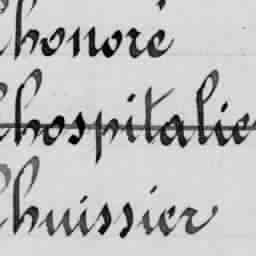 Lhonoré
Lhospitalie
Lhuissier